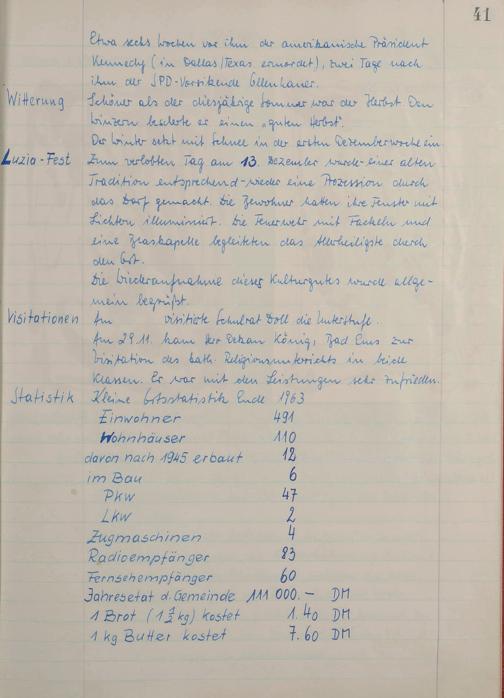 41
Etwa sechs Wochen vor ihm der amerikanische Präsident
Kennedy (in Dallas/Texas ermordet), zwei Tage nach
ihm der SPD-Vorsitzende Ollenhauer.
Witterung Schöner als der diesjährige Sommer war der Herbst. Den
Winzern bescherte er einen "guten Herbst".
Der Winter setzt mit Schnee in der ersten Dezemberwoche ein.
Luzia-Fest Zum verlobten Tag am 13. Dezember wurde einer alten
Tradition entsprechend - wieder eine Prozession durch
das Dorf gemacht. Die Bewohner hatten ihre Fenster mit
Lichtern illuminiert. Die Feuerwehr mit Fackeln und
eine Blaskapelle begleiteten das Allerheiligste durch
den Ort.
Die Wiederaufnahme dieses Kulturgutes wurde allge-
mein begrüßt.
Visitationen Am visitierte Schulrat Doll die Unterstufe.
Am 29.11. kam Herr Dekan König, Bad Ems zur
Visitation des kath. Religionsunterrichts in beide
Klassen. Er war mit den Leistungen sehr zufrieden.
Statistik Kleine Ortsstatistik Ende 1963
Einwohner 491
Wohnhäuser 110
davon nach 1945 erbaut 12
im Bau 6
PKW 47
LKW 2
Zugmaschinen 4
Radioempfänger 83
Fernsehempfänger 60
Jahresetat d. Gemeinde 111 000.- DM
1 Brot ( kg) kostet 1.40 DM
1 kg Butter kostet 7.60 DM